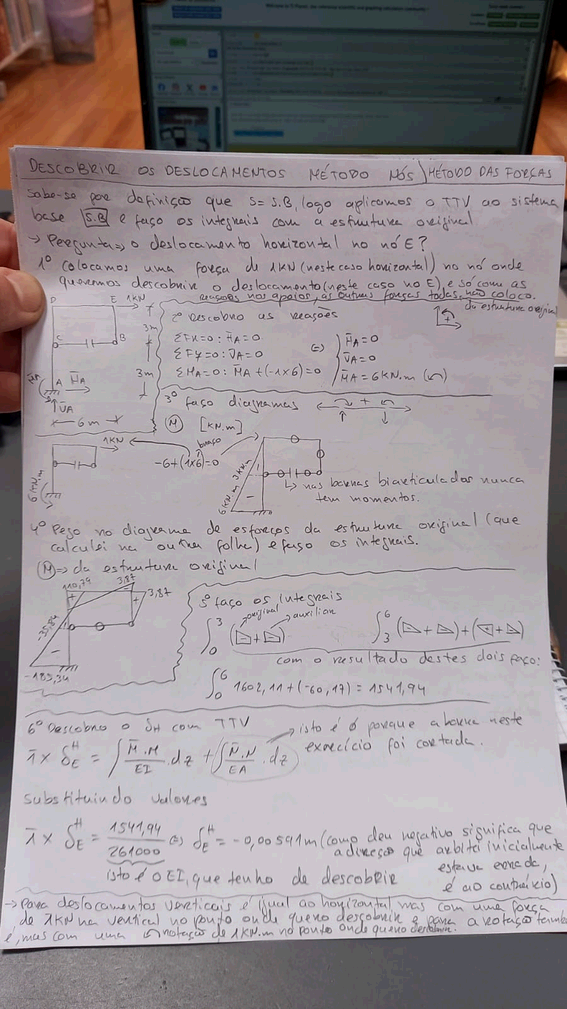 DESCOBRIR OS DESLOCAMENTOS MÉTODO NÓS \ MÉTODO DAS FORÇAS
Sabe-se por definição que S = S.B, logo aplicamos o TTV ao sistema
base S.B e faço os integrais com a estrutura original
→ Pergunta => o deslocamento horizontal no nó E?
1º colocamos uma força de 1KN (neste caso horizontal) no nó onde
queremos descobrir o deslocamento (neste caso no E), e só com as
reações nos apoios, as outras forças todas, não coloco.
da estrutura original
D E 1KN
C B
3m
3m
A H̄A
V̄A
6m
2º Descobro as reações
ΣFx=0: H̄A=0
ΣFy=0: V̄A=0
ΣMA=0: M̄A+(-1x6)=0
(=)
H̄A=0
V̄A=0
M̄A=6KN.m
3º faço diagramas
M̄ [KN.m]
1KN
6KN.m
braço
-6+(1x6)=0
6KN.m 3KN.m
↳ nas barras biarticuladas nunca
tem momentos.
4º Pego no diagrama de esforços da estrutura original (que
calculei na outra folha) e faço os integrais.
M => da estrutura original
110,74 3,87
3,87
-35,84
-183,34
5º faço os integrais
original auxiliar
∫₀³ ( + ) ∫₃⁶ ( + )+( + )
com o resultado destes dois faço:
∫₀⁶ 1602,11+(-60,17) = 1541,94
6º Descobro o δH com TTV
→ isto é 0 porque a barra neste
exercício foi cortada.
1̄ x δ_E^H = ∫ M̄.M/EI .dz + ∫ N̄.N/EA .dz
substituindo valores
1̄ x δ_E^H = 1541,94/261000 (=) δ_E^H = -0,00591m (como deu negativo significa que
a direção que arbitrei inicialmente
estava errada,
é ao contrário)
isto é o EI, que tenho de descobrir
→ para deslocamentos verticais é igual ao horizontal mas com uma força
de 1KN na vertical no ponto onde quero descobrir e para a rotação também
é, mas com uma rotação de 1KN.m no ponto onde quero descobrir.